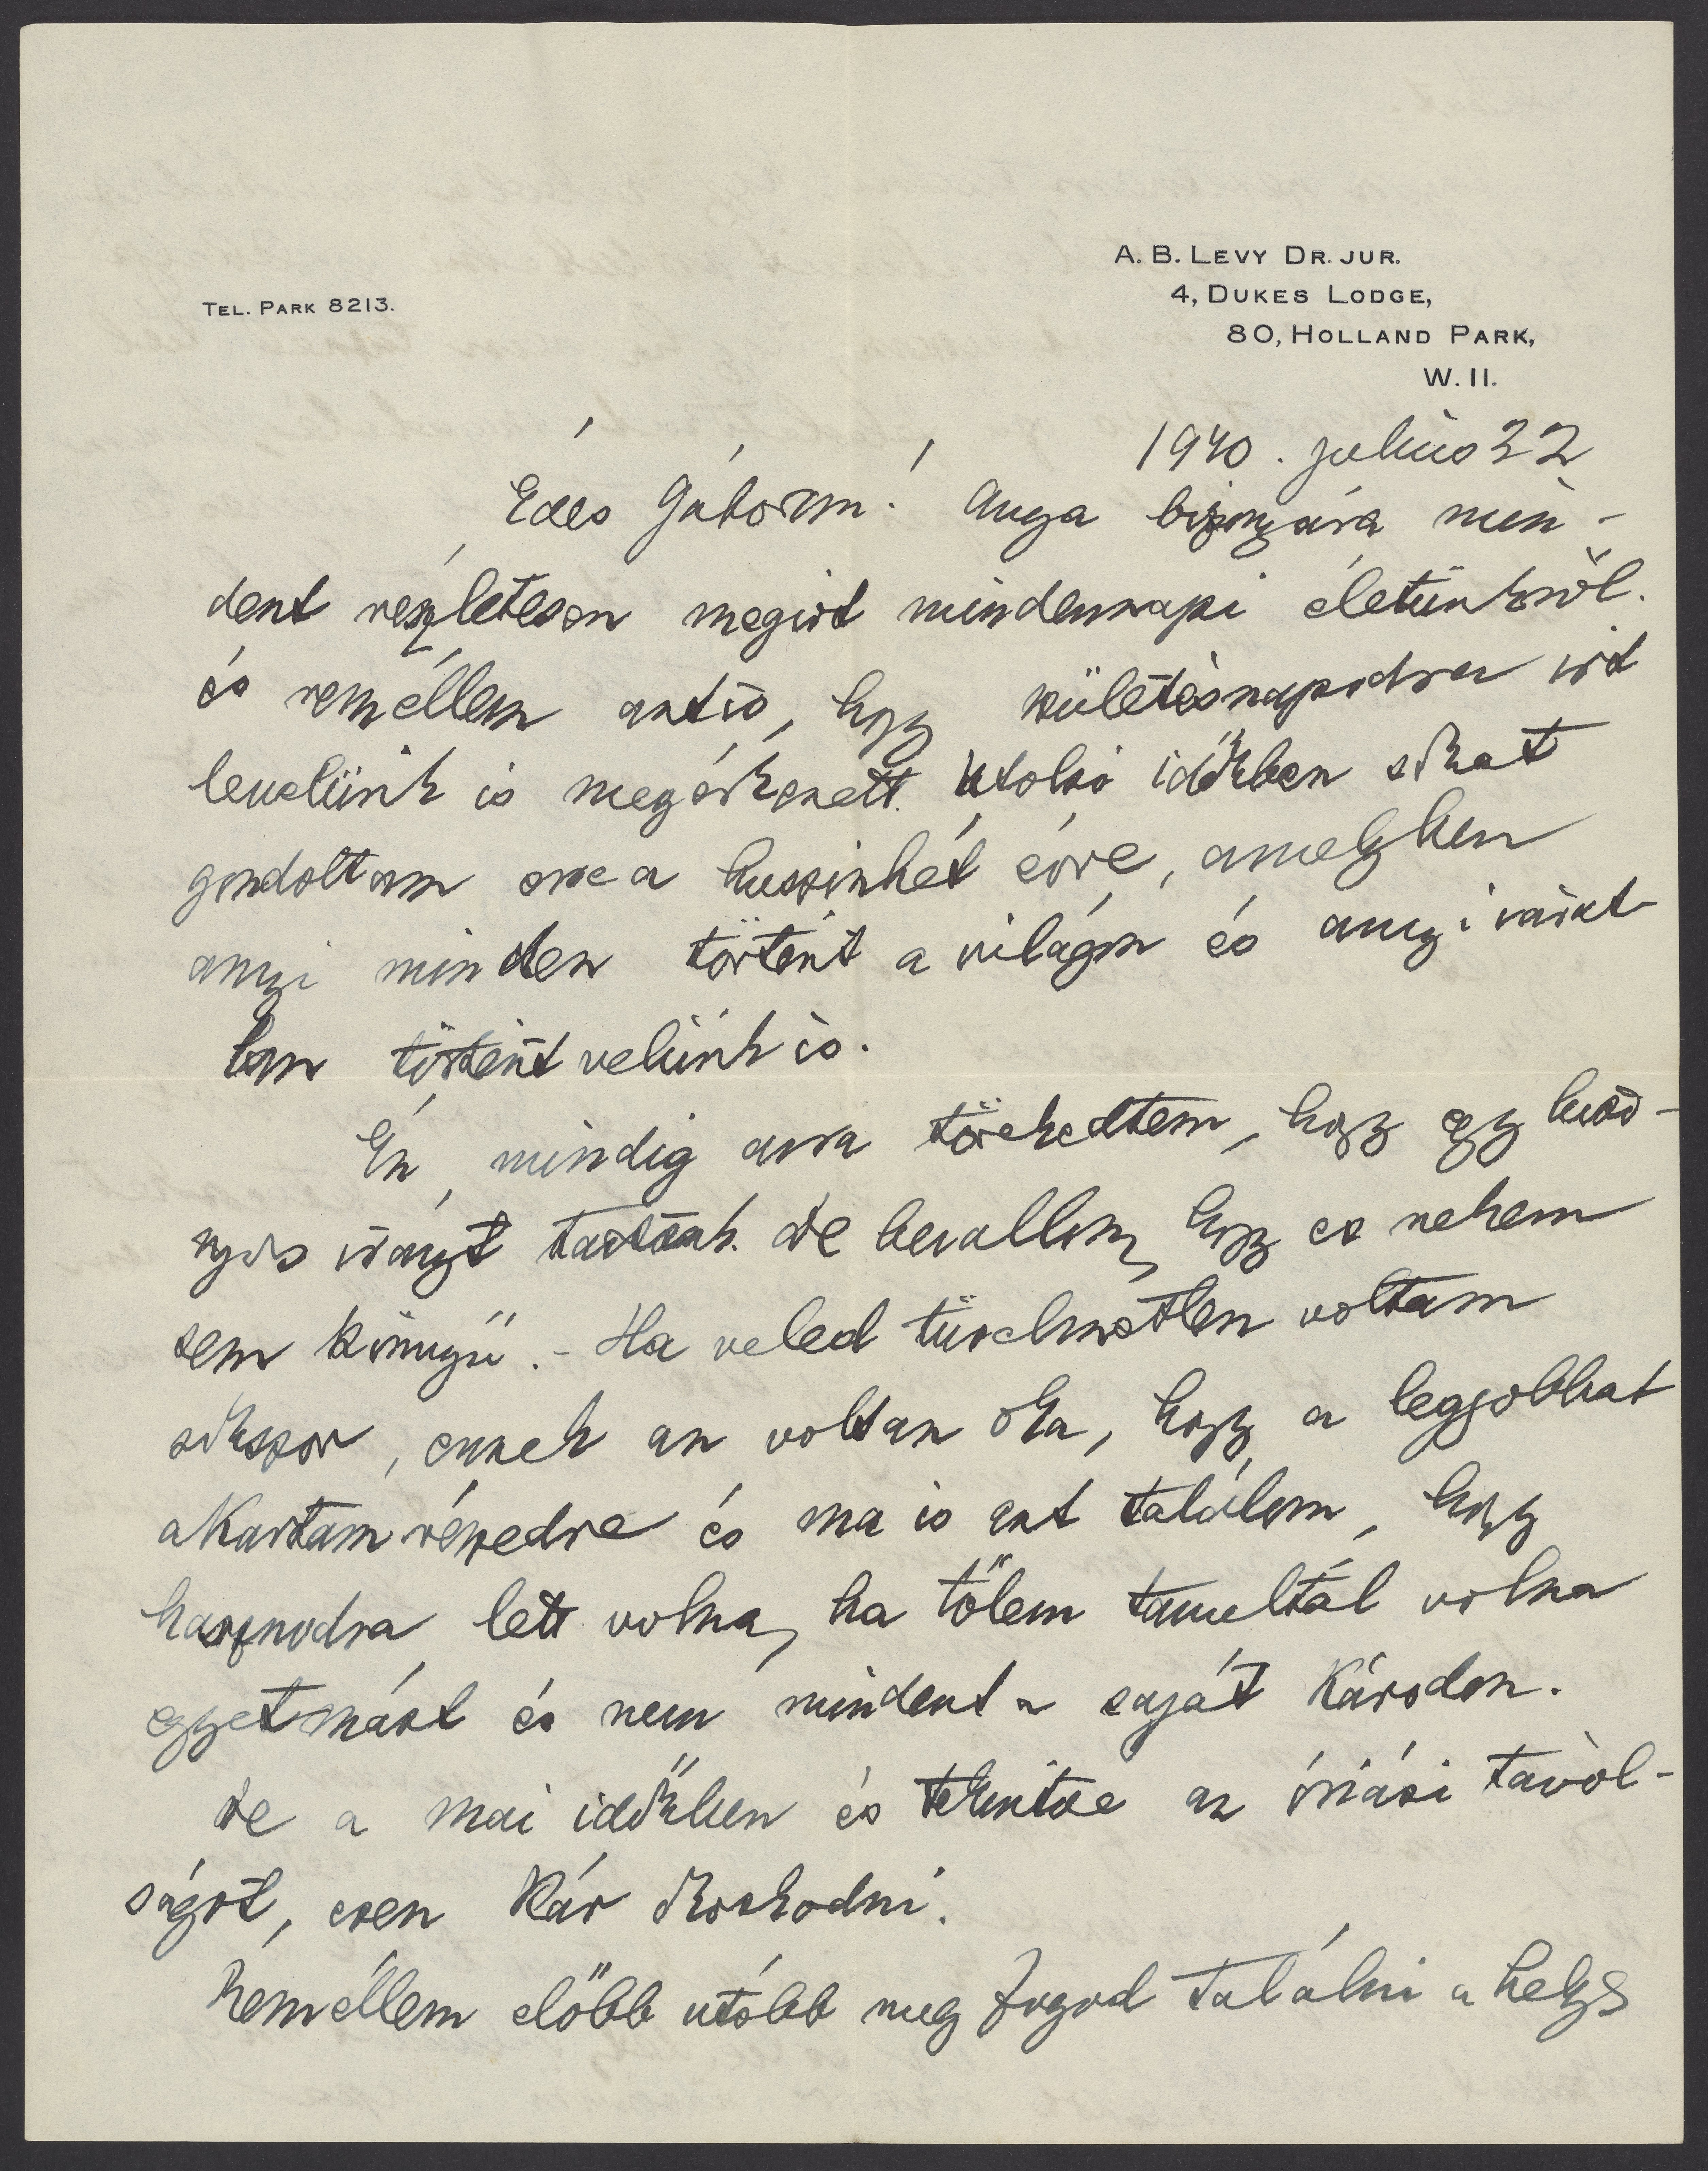 A. B. LEVY DR. JUR.
4, DUKES LODGE,
80, HOLLAND PARK,
W. 11.
TEL. PARK 8213.
1940. julius 22
Édes Gáborom! Anya bizonyára min-
dent részletesen megirt mindennapi életünkröl.
és reméllem azt is, hogy születésnapodra irt
levelünk is megérkezett. Utolsó időkben sokat
gondoltam erre a huszinhét évre, amelyben
annyi minden történt a világon és annyi várat-
lan történt velünk is.
Én mindig arra törekedtem, hogy egy bizo-
nyos irányt tartsak. De bevallom, hogy ez nekem
sem könnyü. - Ha veled türelmetlen voltam
sokszor, ennek az volt az oka, hogy a legjobbat
akartam részedre és ma is azt találom, hogy
hasznodra lett volna, ha tőlem tanultál volna
egyetmást és nem mindent a saját károdon.
De a mai időkben és tekintve az óriási távol-
ságot, ezen kár okoskodni.
Reméllem előbb utóbb meg fogod találni a helyes